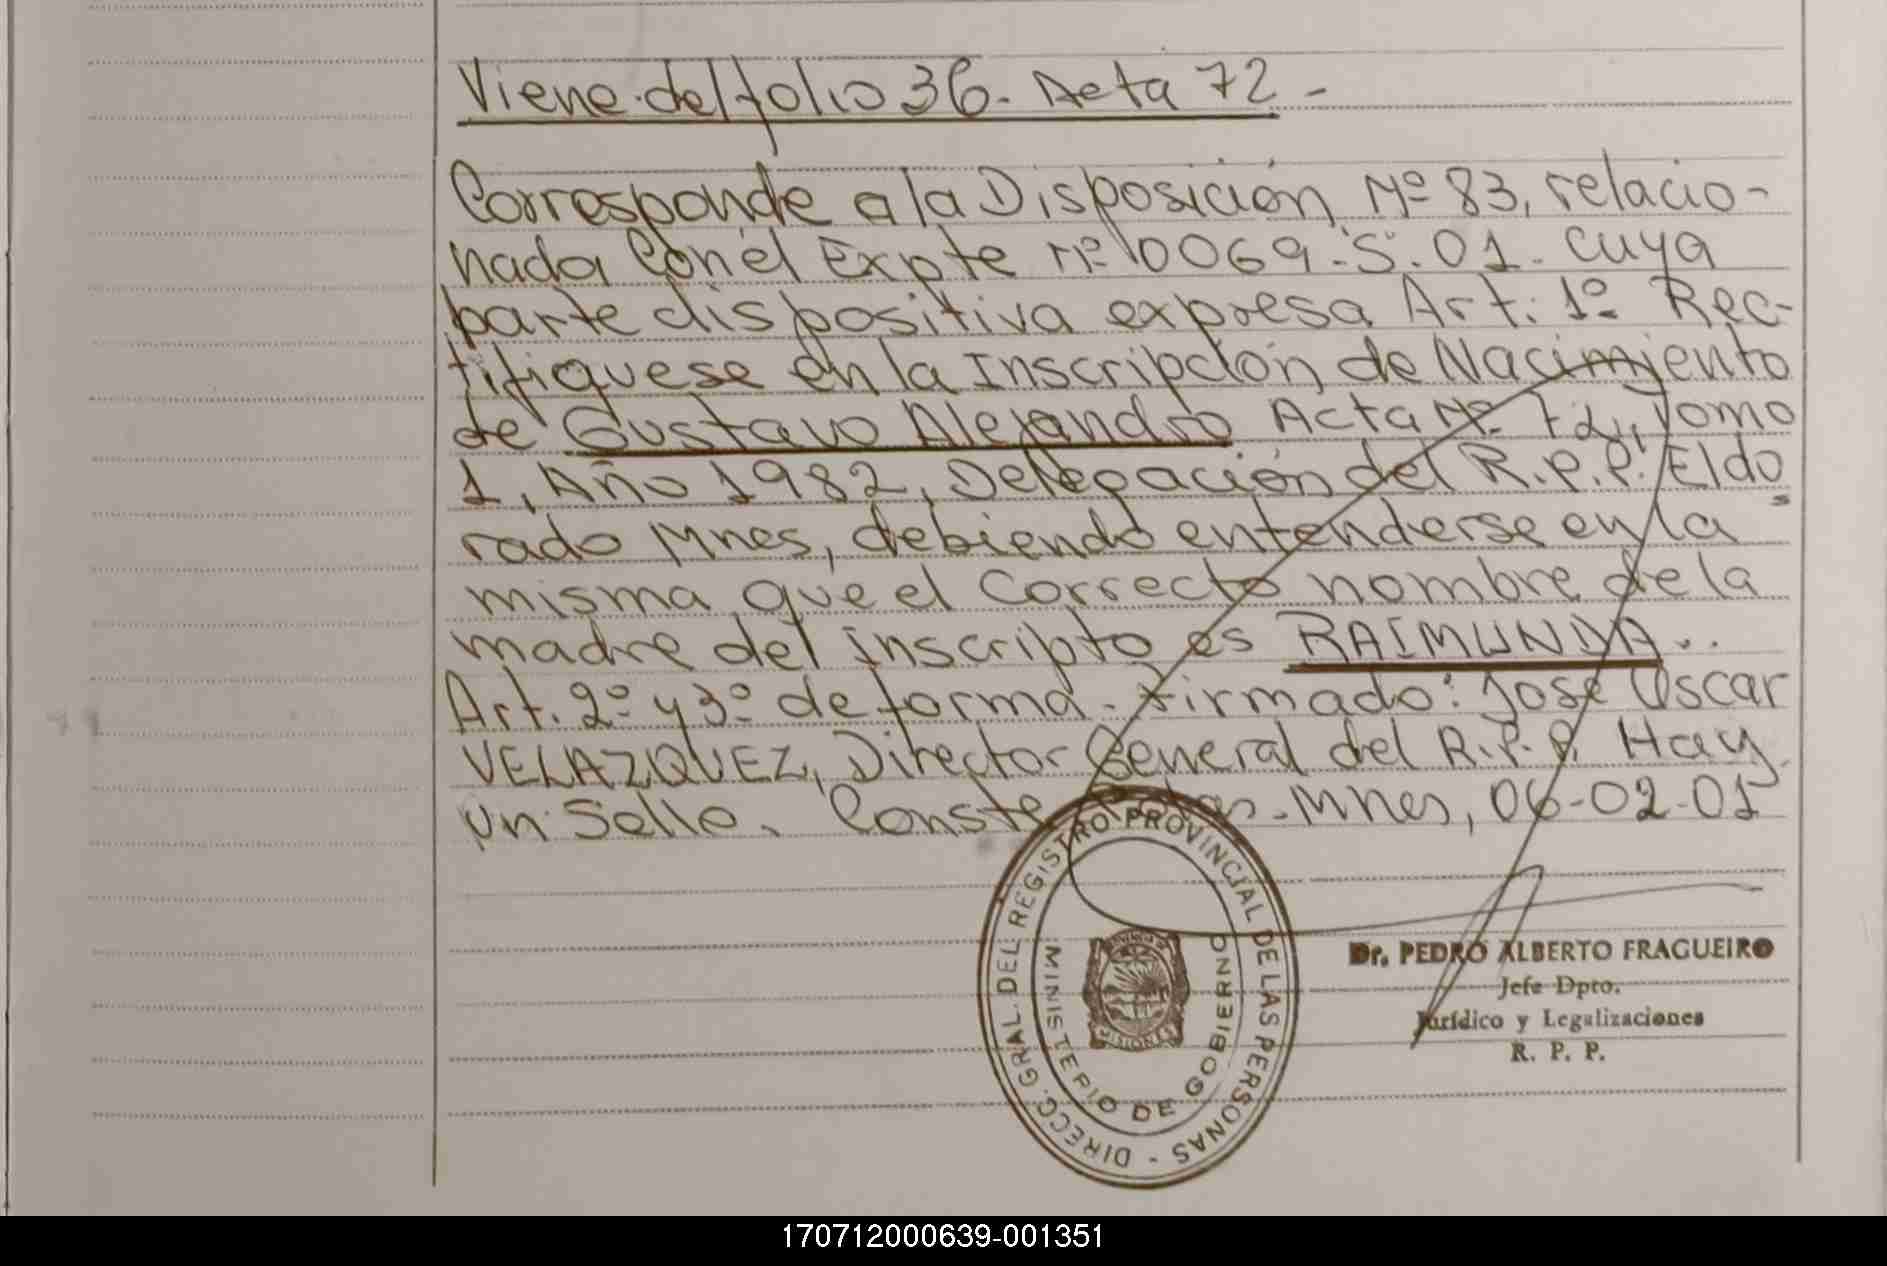 Viene del folio 36. Acta 72 -
Corresponde a la Disposición Nº 83, relacio-
nada Con el Expte Nº 0069-S-01. cuya
parte dispositiva expresa Art. 1º Rec-
tifiquese en la Inscripción de Nacimiento
de Gustavo Alejandro Acta Nº 72, Tomo
1, Año 1982, Delegación del R.P.P. Eldo
rado Mnes, debiendo entenderse en la
misma que el correcto nombre de la
madre del inscripto es RAIMUNDA..
Art. 2º y 3º de forma. Firmado: José Oscar
VELAZQUEZ, Director General del R.P.P. Hay
un Sello. Conste. Mnes, 06-02-01
DIRECC. GRAL. DEL REGISTRO PROVINCIAL DE LAS PERSONAS -
MINISTERIO DE GOBIERNO
MISIONES
Dr. PEDRO ALBERTO FRAGUEIRO
Jefe Dpto.
Jurídico y Legalizaciones
R. P. P.
170712000639-001351